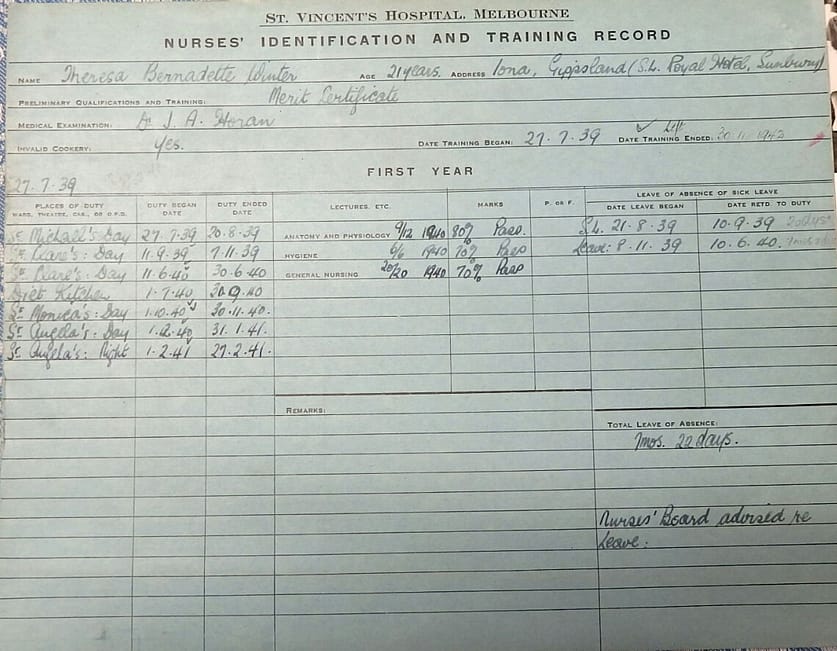 ST. VINCENT'S HOSPITAL, MELBOURNE
NURSES' IDENTIFICATION AND TRAINING RECORD
NAME Theresa Bernadette Winter AGE 21 years. ADDRESS Iona, Gippsland (S.L. Royal Hotel, Sunbury)
PRELIMINARY QUALIFICATIONS AND TRAINING: Merit Certificate
MEDICAL EXAMINATION: Dr J. A. Horan
INVALID COOKERY: Yes. DATE TRAINING BEGAN: 27.7.39 DATE TRAINING ENDED: Left 30.11.1942
FIRST YEAR
27.7.39
PLACES OF DUTY DUTY BEGAN DUTY ENDED LECTURES, ETC. MARKS P. OR F. LEAVE OF ABSENCE OF SICK LEAVE
WARD, THEATRE, CAS., OR O.P.D. DATE DATE DATE LEAVE BEGAN DATE RETD TO DUTY
St. Michael's: Day 27.7.39 20.8.39 ANATOMY AND PHYSIOLOGY 9/12 1940 80% Pass. S.L. 21.8.39 10.9.39 20 days
St. Clare's: Day 11.9.39 7.11.39 HYGIENE 6/6 1940 70% Pass Leave: 8.11.39 10.6.40. 7mos
St. Clare's: Day 11.6.40 30.6.40 GENERAL NURSING 1940 70% Pass
Diet Kitchen 1.7.40 30.9.40
St. Monica's: Day 1.10.40 30.11.40.
St. Angela's: Day 1.12.40 31.1.41.
St. Angela's: Night 1.2.41 27.2.41.
REMARKS:
TOTAL LEAVE OF ABSENCE:
7mos. 22 days.
Nurses' Board advised re
Leave.